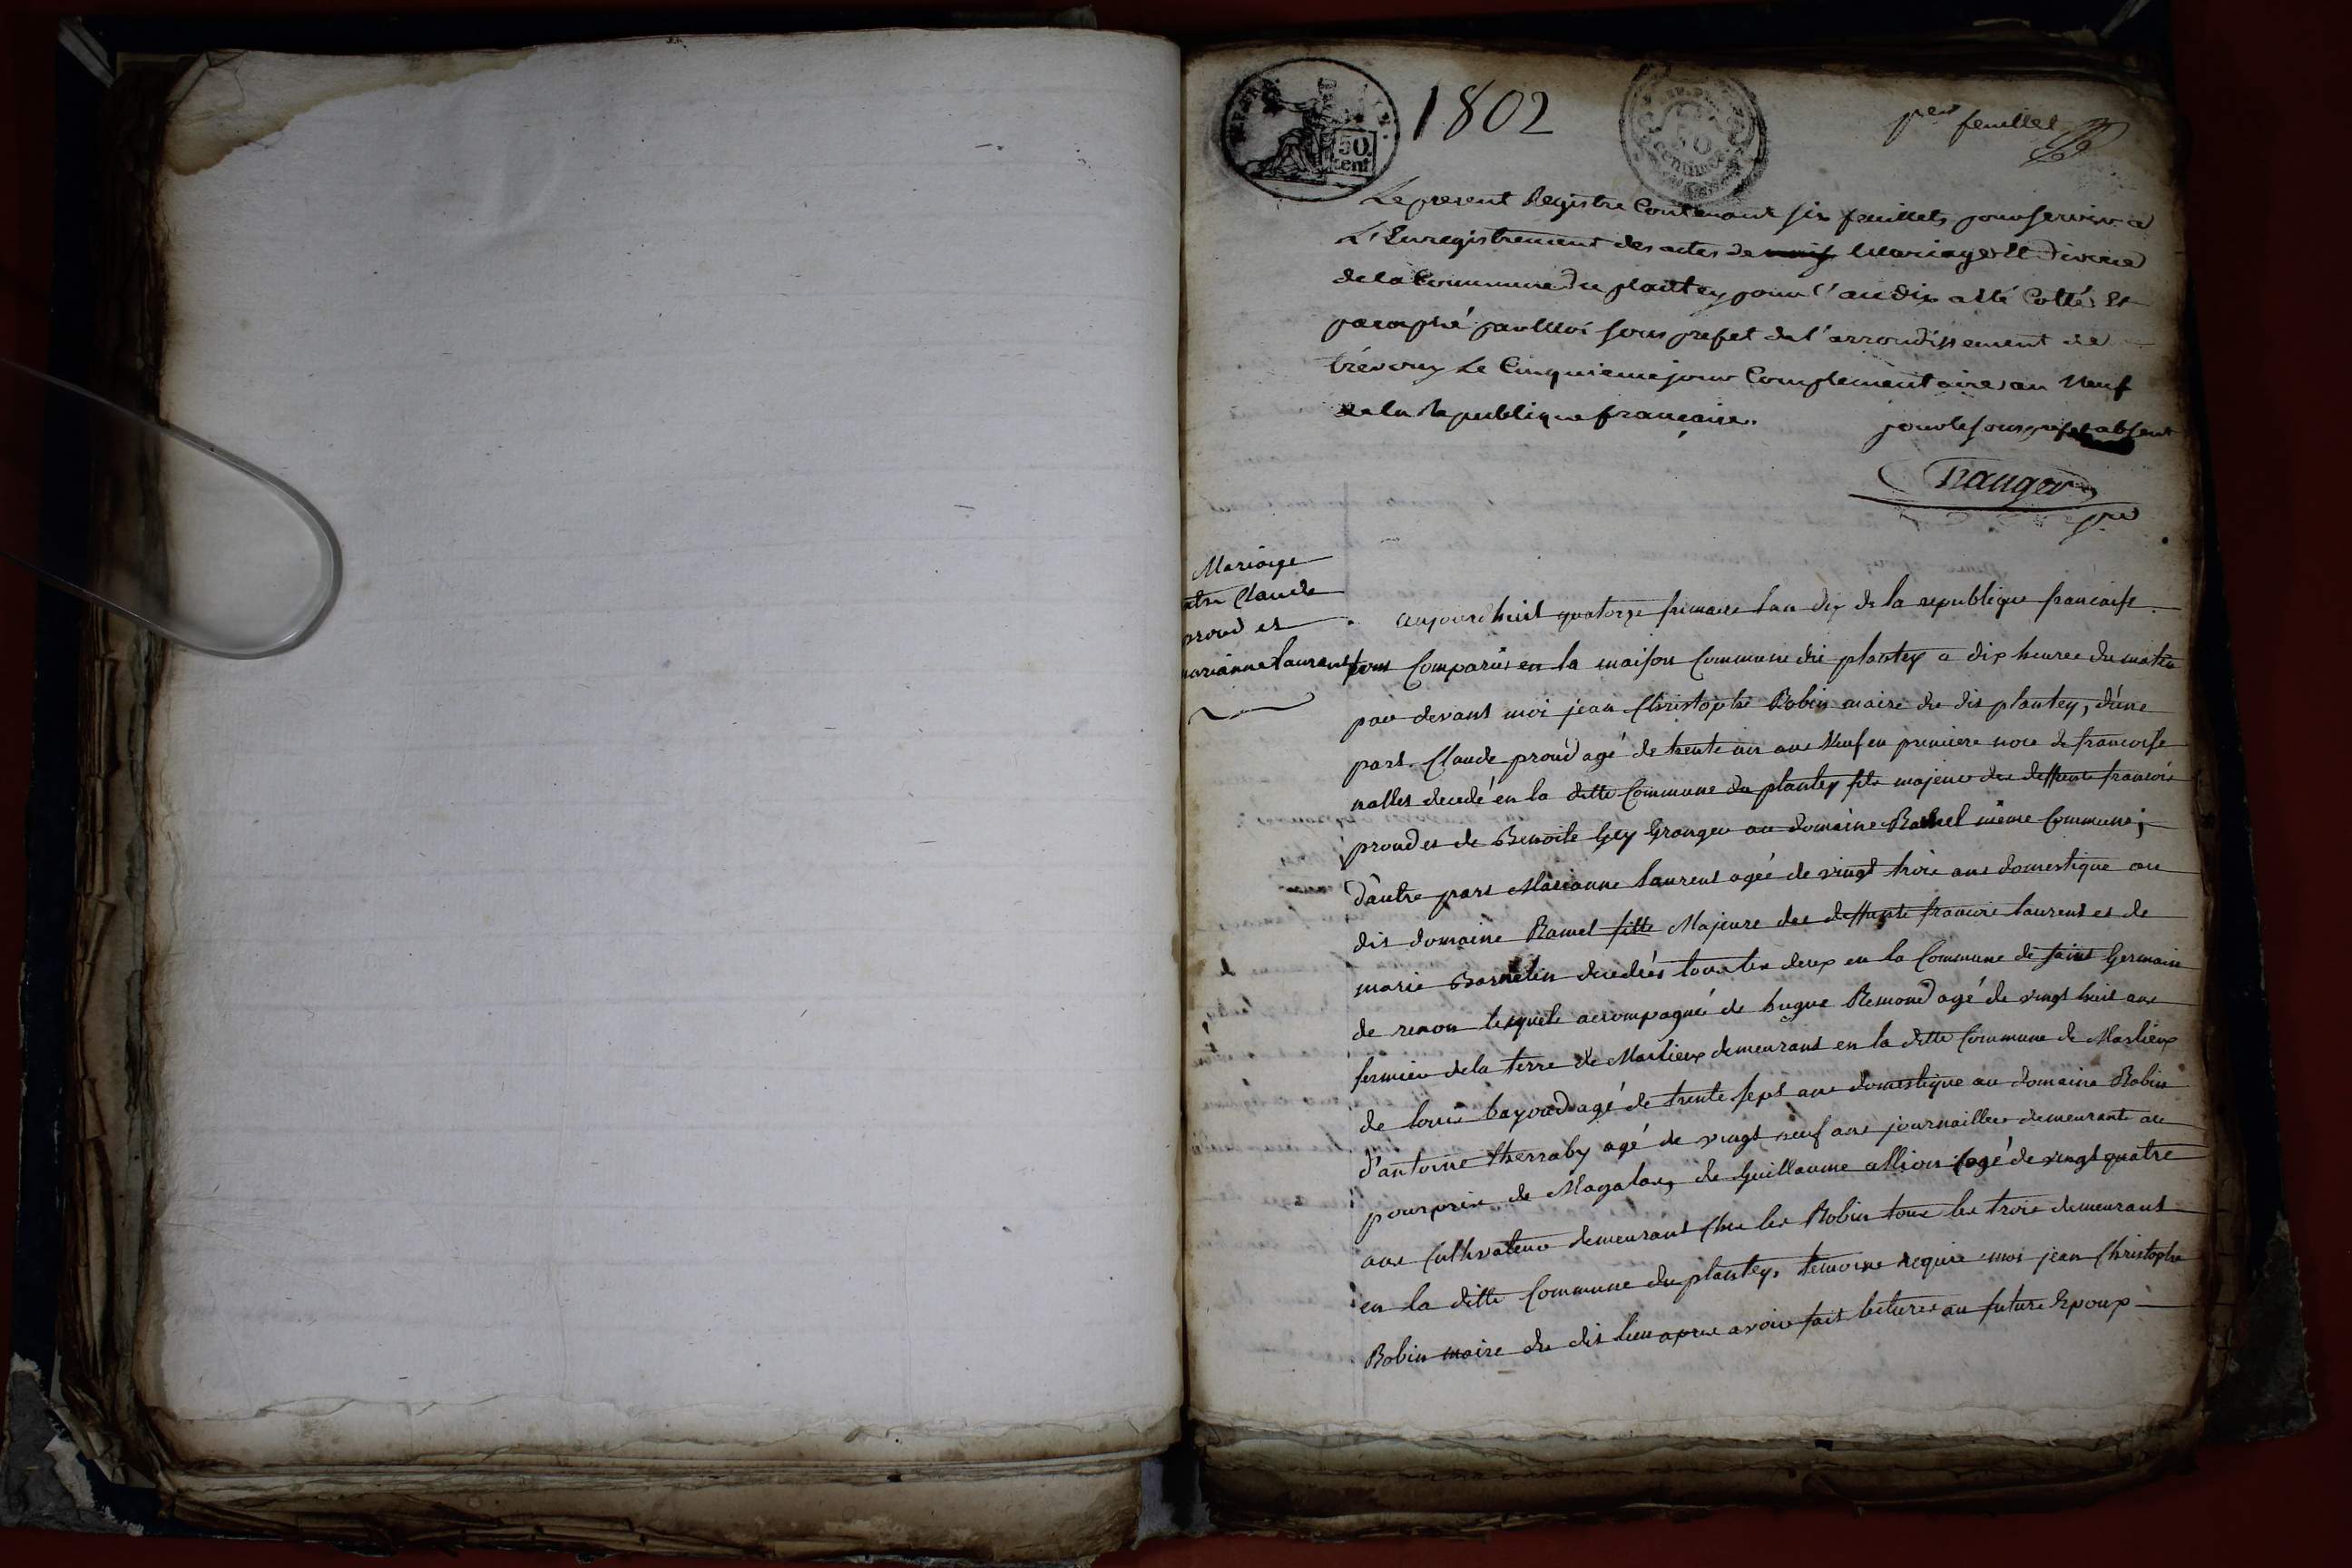 1802
50 cent
50 centimes
per feuillet
Le present Registre Contenant six feuillets pour servir a
L'Enregistrement des actes de Mariage et divorce
de la Commune du plantey pour l'an dix a été Cotté et
paraphé par Moi sous prefet de l'arrondissement de
trévoux Le Cinquieme jour Complementaire an Neuf
de la Republique francaise.
pour le sous prefet absent
Mariage
entre Claude
proud et
marianne laurent
aujourdhuit quatorze frimaire l'an dix de la republique francaise
sont Comparus en la maison Commune du plantey a dix heures du matin
par devant moi jean Christophe Robin maire du dit plantey, d'une
part Claude proud agé de trente un ans Veuf en premiere noce de francoise
nallet decedé en la ditte Commune du plantey fils majeur des deffunts francois
proud et de Benoite Gey Granger au domaine Ramel même Commune,
d'autre part Marianne laurent agée de vingt trois ans domestique au
dit domaine Ramel fille Majeure des deffunts francois laurent et de
marie decedés tous les deux en la Commune de saint Germain
de renon lesquels accompagné de hugue Remond agé de vingt huit ans
fermier de la terre de Marlieux demeurant en la ditte Commune de Marlieux
de louis bayoud agé de trente sept ans domestique au domaine Robin
d'antoine therraby agé de vingt neuf ans journaillier demeurants au
pourprix de Magalas, de Guillaume allion agé de vingt quatre
ans Cultivateur demeurant Chez les Robin tous les trois demeurant
en la ditte Commune du plantey, temoins requis moi jean Christophe
Robin maire du dit lieu apres avoir fait lectures au future Epoux